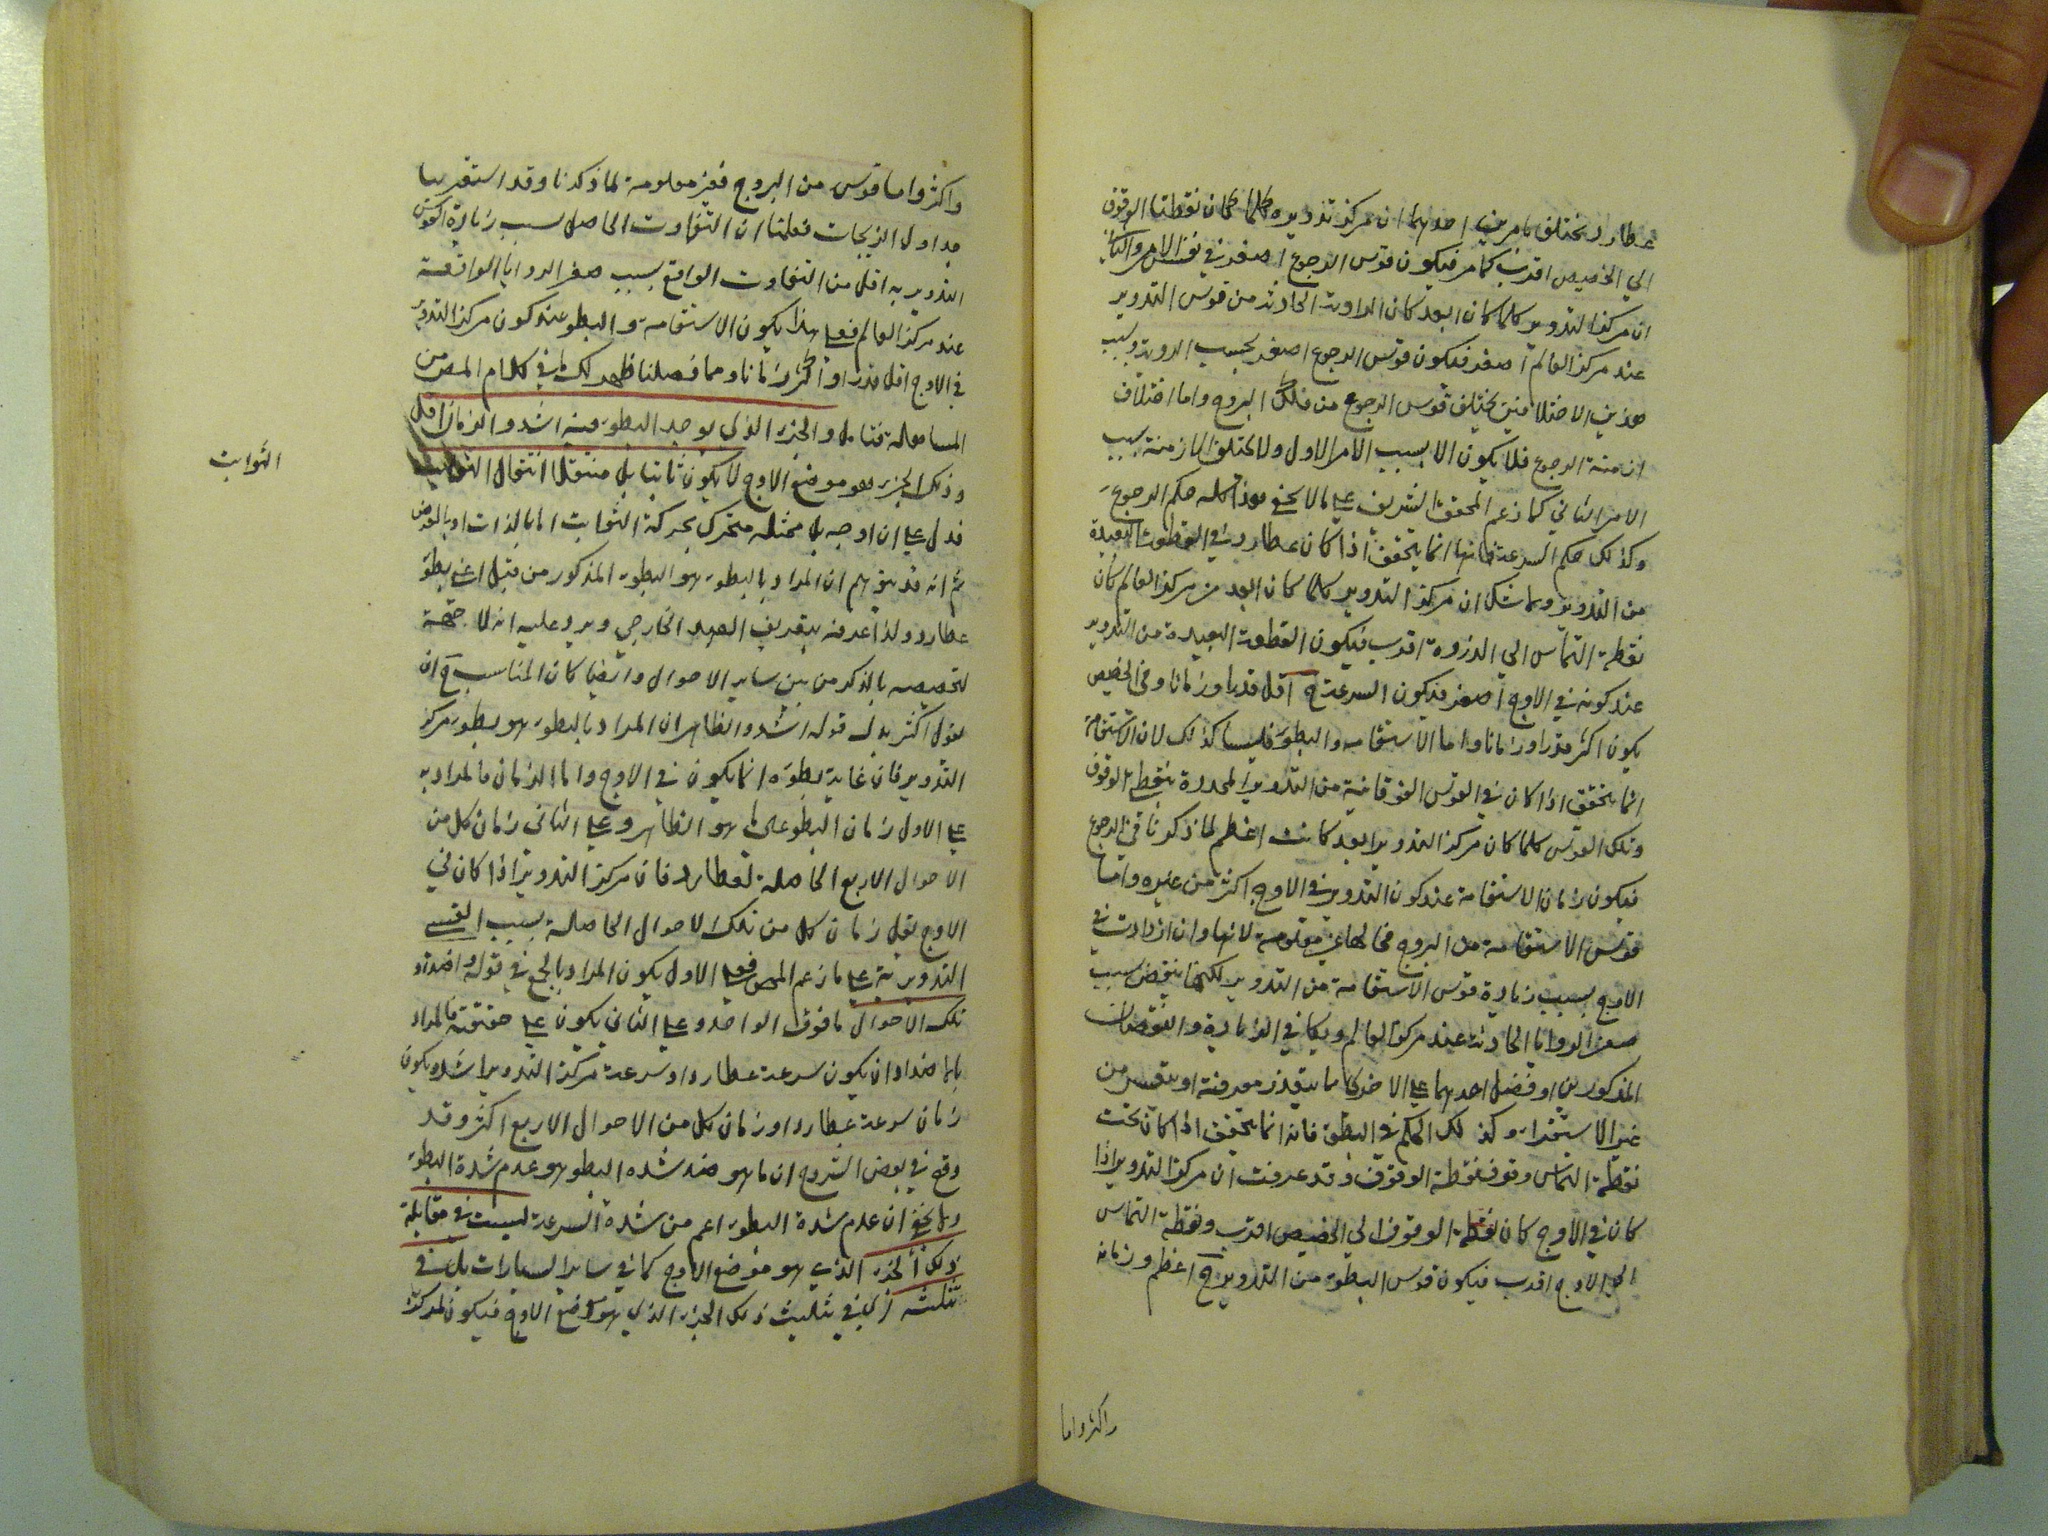 عطارد يختلف بامرين احدهما ان مركز تدويره كلما كان نقطتا الوقوف
الي الحضيض اقرب كما مر فيكون قوس الرجوع اصغر في نفس الامر والثاني
ان مركز التدوير كلما كان ابعد كان الزاوية الحادثة من قوس التدوير
عند مركز العالم اصغر فيكون قوس الرجوع اصغر بحسب الرؤية وبسبب
هذين الاختلافين يختلف قوس الرجوع من فلك البروج واما اختلاف
ازمنة الرجوع فلا يكون الا بسبب الامر الاول ولا يختلف الازمنة بسبب
الامر الثاني كما زعم المحقق الشريف علي ما لا يخفي هذا كله حكم الرجوع
وكذلك حكم السرعة فانها انما يتحقق اذا كان عطارد في القطعة البعيدة
من التدوير وما شك ان مركز التدوير كلما كان ابعد من مركز العالم كان
نقطة التماس الي الذروة اقرب فيكون القطعة البعيدة من التدوير
عند كونه في الاوج اصغر فيكون السرعة ح اقل قدرا وزمانا وفي الحضيض
يكون اكثر قدرا وزمانا واما الاستقامة والبطوء فليسا كذلك لان الاستقامة
انما يتحقق اذا كان في القوس الفوقانية من التدوير المحدودة بنقطتي الوقوف
وتلك القوس كلما كان مركز التدوير ابعد كانت اعظم لما ذكرنا في الرجوع
فيكون زمان الاستقامة عند كون التدوير في الاوج اكثر من غيره واما
قوس الاستقامة من البروج فحالها غير معلومة لانها وان ازدادت في
الاوج بسبب زيادة قوس الاستقامة من التدوير لكنها ينقص بسبب
صغر الزوايا الحادثة عند مركز العالم وتكافي الزيادة والنقصان
المذكورين او فضل احدهما علي الاخر مما يتعذر معرفته او يتعسر من
غير الاستقراء وكذلك الحكم في البطوء فانه انما يتحقق اذا كان تحت
نقطة التماس وفوق نقطة الوقوف وقد عرفت ان مركز التدوير اذا
كان في الاوج كان نقطة الوقوف الي الحضيض اقرب ونقطة التماس
الي الاوج اقرب فيكون قوس البطوء من التدوير ح اعظم وزمانه
واكثر واما
واكثر واما قوس من البروج فغير معلومة لما ذكرنا وقد استقرينا
جداول الزيجات فعلمنا ان التفاوت الحاصل بسبب زيادة القوس
التدويرية اقل من التفاوت الواقع بسبب صغر الزوايا الواقعة
عند مركز العالم فعلي هذا يكون الاستقامة والبطوء عند كون مركز التدوير
في الاوج اقل قدرا واكثر زمانا ومما فصلنا ظهر لك ما في كلام المص من
المساهلة فتامل والجزء الذي يوجد البطوء فيه اشد والزمان اقل
وذلك الجزء هو موضع الاوج لا يكون ثابتا بل منتقلا انتقال الثوابت
الثوابت
فدل علي ان اوجه بل ممثله متحرك بحركة الثوابت اما بالذات او بالعرض
ثم انه قد يتوهم ان المراد بالبطوء هو البطوء المذكور من قبل اعني بطوء
عطارد ولذا عرفه بتعريف العهد الخارجي ويرد عليه انه لا جهة
لتخصيصه بالذكر من بين ساير الاحوال وايضا كان المناسب ح ان
يقول اكثر بدل قوله اشد والظاهر ان المراد بالبطوء هو بطوء مركز
التدوير فان غاية بطوءه انما يكون في الاوج واما الزمان فالمراد به
علي الاول زمان البطوء علي ما هو الظاهر وعلي الثاني زمان كل من
الاحوال الاربع الحاصلة لعطارد فان مركز التدوير اذا كان في
الاوج يقل زمان كل من تلك الاحوال الحاصلة بسبب القسي
التدويرية علي ما زعم المص فعلي الاول يكون المراد بالجمع في قوله واضداد
تلك الاحوال ما فوق الواحد وعلي الثاني يكون علي حقيقته فالمراد
بالاضداد ان يكون سرعة عطارد او سرعة مركز التدوير اشد ويكون
زمان سرعة عطارد او زمان كل من الاحوال الاربع اكثر وقد
وقع في بعض الشروح ان ما هو ضد شدة البطوء هو عدم شدة البطوء
ولا يخفي ان عدم شدة البطوء اعم من شدة السرعة ليست في مقابلة
ذلك الجزء الذي هو موضع الاوج كما في ساير السيارات بل في
تثليثه اي في تثليث ذلك الجزء الذي هو موضع الاوج فيكون لمركز